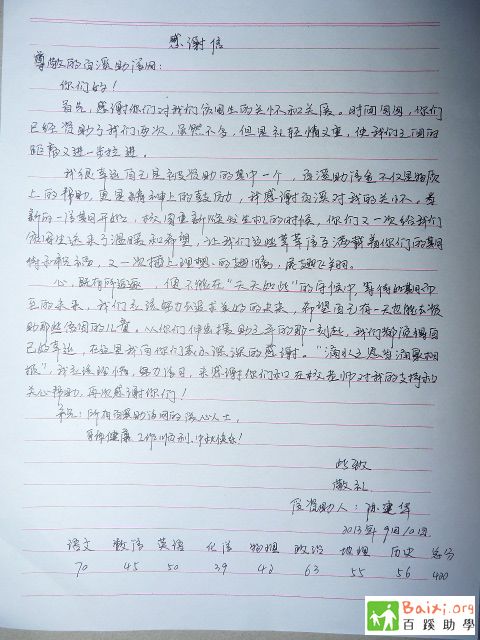 感谢信
尊敬的百溪助学网：
你们好！
首先，感谢你们对我们贫困生的关怀和关爱。时间匆匆，你们
已经资助了我们两次，虽然不多，但是礼轻情义重，使我们之间的
距离又进一步拉进。
我很幸运自己是被资助的其中一个，百溪助学金不仅是物质
上的帮助，更是精神上的鼓励，我感谢百溪对我的关怀。春
新的一序幕开始，校园重新焕发生机的时候，你们又一次给我们
贫困生送来了温暖和希望，让我们这些莘莘学子满载着你们的期
待和祝福，又一次插上理想的翅膀，展翅飞翔。
心，既有所追求，便不能在“天天如此”的
的未来，我们应该努力去追求美好的未来，希望自己有一天也能去资
助那些贫困的儿童。从你们伸出援助之手的那一刻起，我们都深得自
己的幸运，在这里我向你们表示深深的感谢。“滴水之恩当涌泉相
报”，我应该珍惜，努力学习，来感谢你们和在校老师对我的支持和
关心帮助，再次感谢你们！
祝：所有百溪助学网的爱心人士，
身体健康，工作顺利，中秋快乐！
此致
敬礼
受资助人：陈建华
2013年9月10日
语文 数学 英语 化学 物理 政治 地理 历史 总分
70 45 50 39 42 63 55 56 420
Baixi.org
百蹊助學